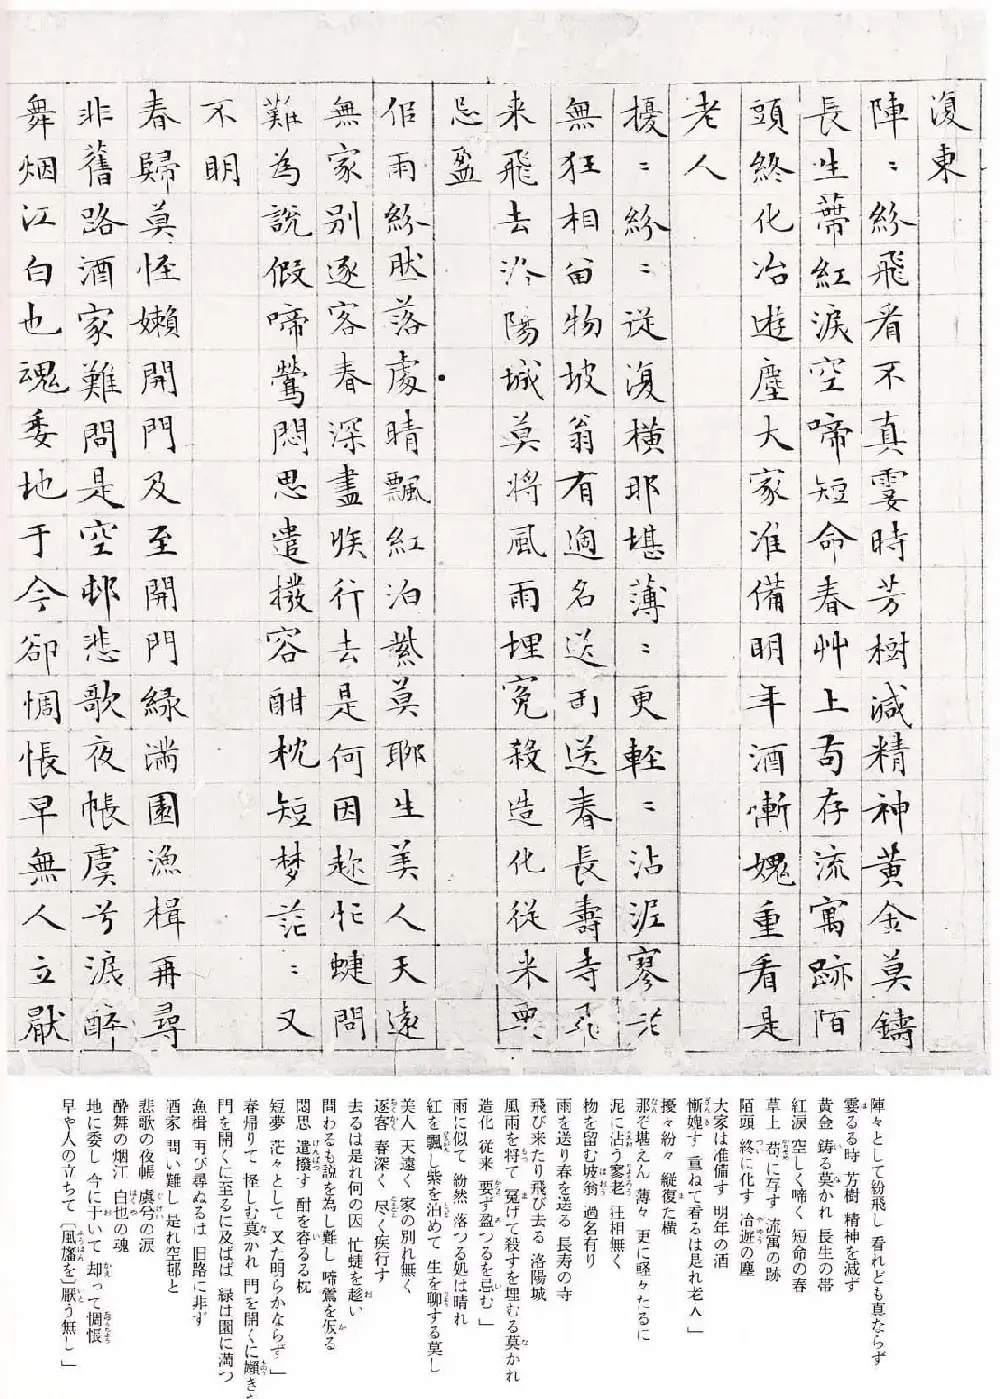 復東
陣〻紛飛看不真霎時芳樹減精神黄金莫鑄
長生蔕紅淚空啼短命春艸上苟存流寓跡陌
頭終化冶遊塵大家准備明年酒慚媿重看是
老人
擾〻紛〻從復横那堪薄〻更輕〻沾泥寥㳷
無狂相留物坡翁有過名送雨送春長壽寺飛
来飛去洛陽城莫將風雨埋冤殺造化從来要
忌盈
佀雨紛肰落處晴飄紅泊紫莫聊生美人天遠
無家別逐客春深盡族行去是何因趂忙蜨問
難為説假啼鶯悶思遣撥容酣枕短梦茫〻又
不明
春歸莫怪嬾開門及至開門緑满園漁楫再尋
非舊路酒家難問是空邨悲歌夜帳虞兮淚醉
舞烟江白也魂委地于今卻惆悵早無人立厭
陣々として紛飛し 看れども真ならず
霎るる時 芳樹 精神を減ず
黄金 鋳る莫かれ 長生の蒂
紅涙 空しく啼く 短命の春
草上 苟に存す 流寓の跡
陌頭 終に化す 冶遊の塵
大家は准備す 明年の酒
慚媿す 重ねて看るは是れ老人」
擾々紛々 縦復た横
那ぞ堪えん 薄々 更に軽々たるに
泥に沾う寥老 狂相無く
物を留む坡翁 過名有り
雨を送り春を送る 長寿の寺
飛び来たり飛び去る 洛陽城
風雨を将て 冤げて殺すを埋む莫かれ
造化 従来 要ず盈つるを忌む」
雨に似て 紛然 落つる処は晴れ
紅を飄し紫を泊めて 生を聊する莫し
美人 天遠く 家の別れ無く
逐客 春深く 尽く疾行す
去るは是れ何の因 忙蜨を趂い
問わるも説を為し難し 啼鶯を仮る
悶思 遣撥す 酣を容るる枕
短夢 茫々として 又た明らかならず」
春帰りて 怪しむ莫かれ 門を開くに嬾き
門を開くに至るに及ばば 緑は園に満つ
漁楫 再び尋ぬるは 旧路に非ず
酒家 問い難し 是れ空邨と
悲歌の夜帳 虞兮の涙
酔舞の烟江 白也の魂
地に委し 今に于いて 却って惆悵
早や人の立ちて〔風旛を〕厭う無し」